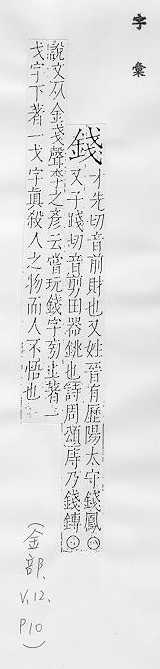 字彙
錢
才先切音前財也又姓晉有歷陽太守錢鳳◎
又子踐切音剪田器銚也詩周頌庤乃錢鎛◎
說文从金戔聲李之彥云嘗玩錢字旁上著一
戈字下著一戈字真殺人之物而人不悟也
(金部、
V.12.
P10
)